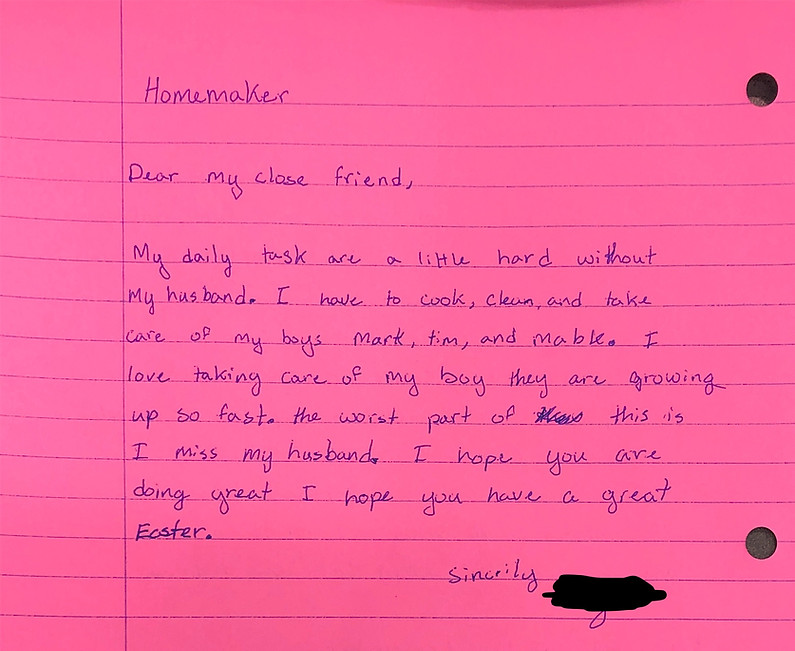 Homemaker
Dear my close friend,
My daily task are a little hard without
My husband. I have to cook, clean, and take
care of my boys Mark, tim, and mable. I
love taking care of my boy they are growing
up so fast. the worst part of this is
I miss my husband. I hope you are
doing great I hope you have a great
Easter.
sincrily